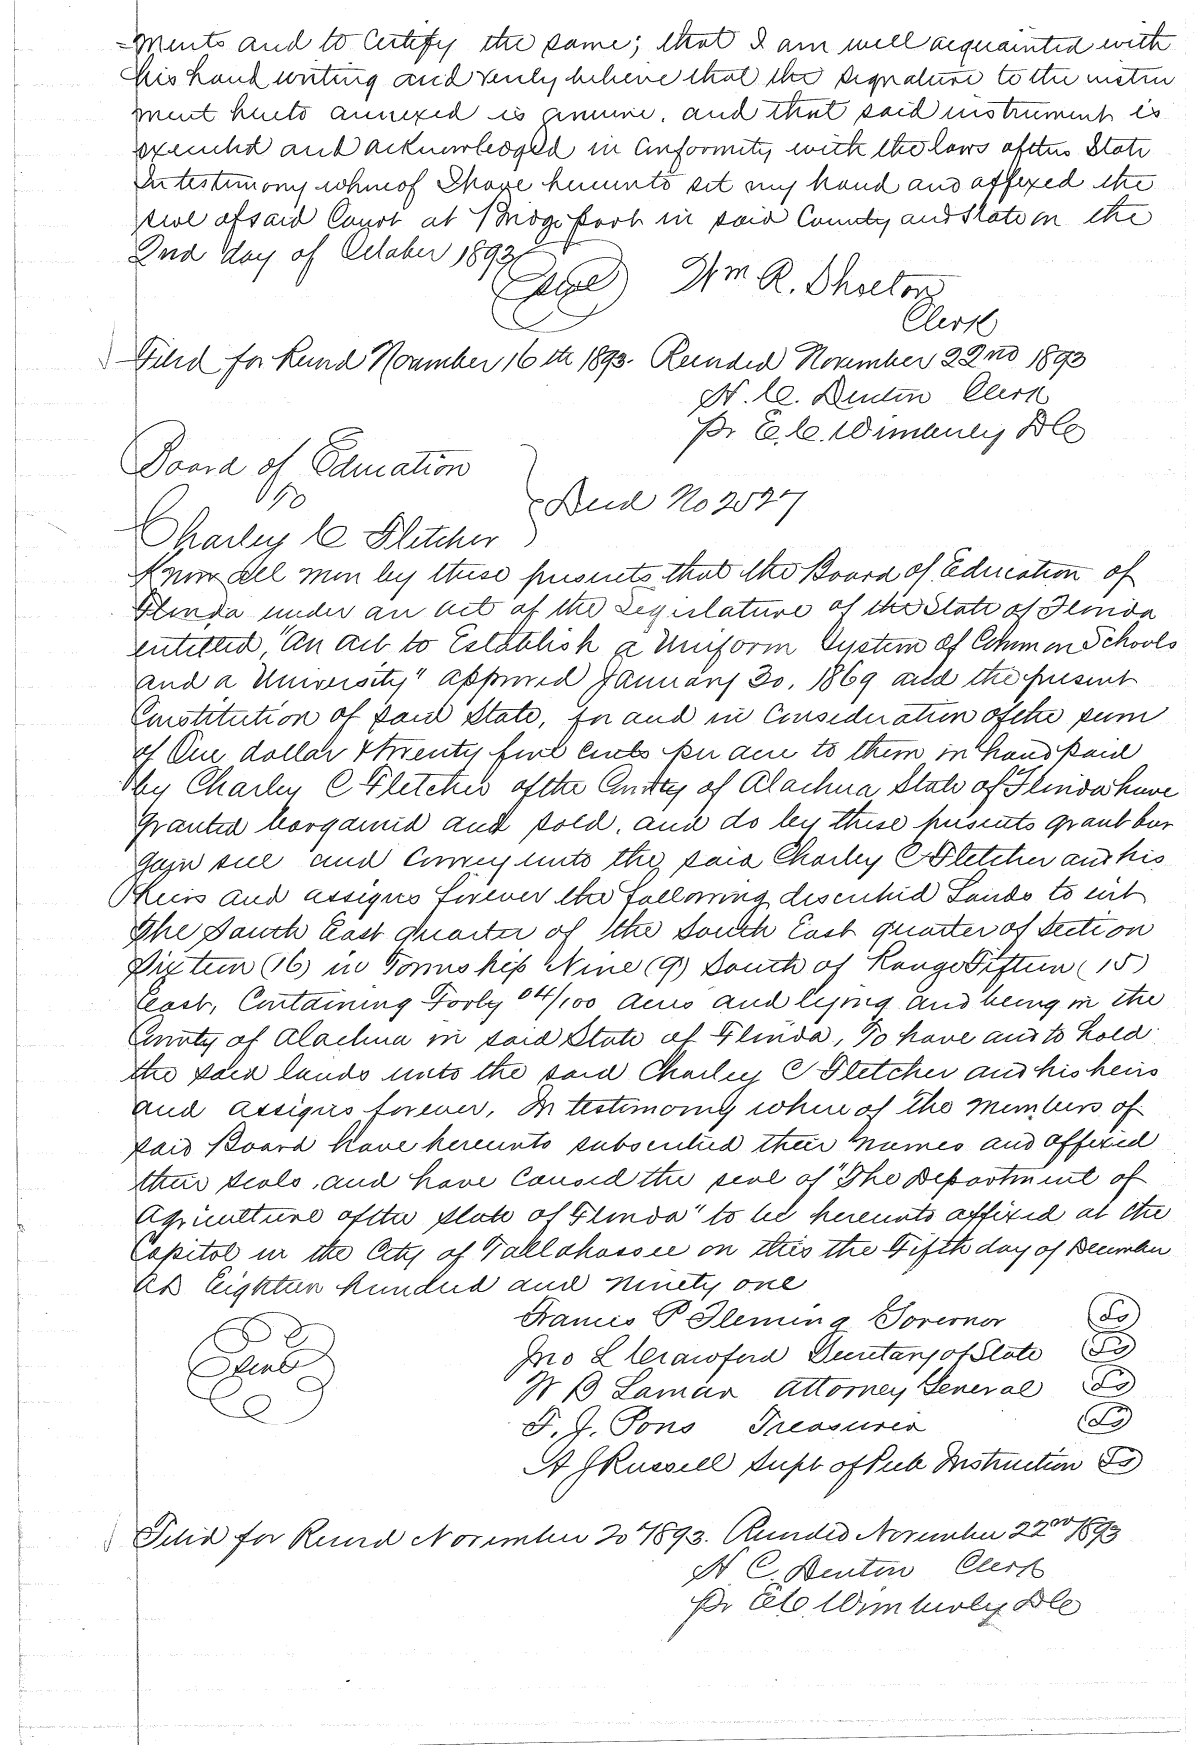 =ments and to Certify the same; that I am well acquainted with
his hand writing and verily believe that the signature to the instru
ment hereto annexed is genuine, and that said instrument is
executed and acknowledged in Conformity with the laws of this State
In testimony whereof I have hereunto set my hand and affixed the
seal of said Court at Bridgeport in said County and State on the
2nd day of October 1893
Seal Wm R. Shelton
Clerk
Filed for Record November 16th 1893. Recorded November 22nd 1893
H. C. Denton Clerk
Pr E. C. Wimberly DC
Board of Education
To
Deed No 2527
Charley C Fletcher
Know all men by these presents, that the Board of Education of
Florida under an act of the Legislature of the State of Florida
entitled, "An act to Establish a Uniform System of Common Schools
and a University" approved January 30, 1869 and the present
Constitution of said State, for and in Consideration of the sum
of One dollar & twenty five cents per acre to them in hand paid
by Charley C Fletcher of the County of Alachua State of Florida have
granted bargained and sold, and do by these presents grant bar
gain sell and Convey unto the said Charley C Fletcher and his
heirs and assigns forever the following described Lands to wit
The South East quarter of the South East quarter of Section
Sixteen (16) in Township Nine (9) South of Range Fifteen (15)
East, Containing Forty 04/100 acres and lying and being in the
County of Alachua in said State of Florida, To have and to hold
the said lands unto the said Charley C Fletcher and his heirs
and assigns forever. In testimony where of the Members of
said Board have hereunto subscribed their names and affixed
their seals, and have Caused the seal of "The Department of
Agriculture of the State of Florida" to be hereunto affixed at the
Capitol in the City of Tallahassee on this the Fifth day of December
AD Eighteen hundred and ninety one
Francis P Fleming Governor Ls
Seal
Jno L Crawford Secretary of State Ls
W B Lamar Attorney General Ls
F. J. Pons Treasurer Ls
A J Russell Supt of Pub Instruction Ls
Filed for Record November 20" 1893. Recorded November 22nd 1893
H C. Denton Clerk
Pr E C. Wimberly DC